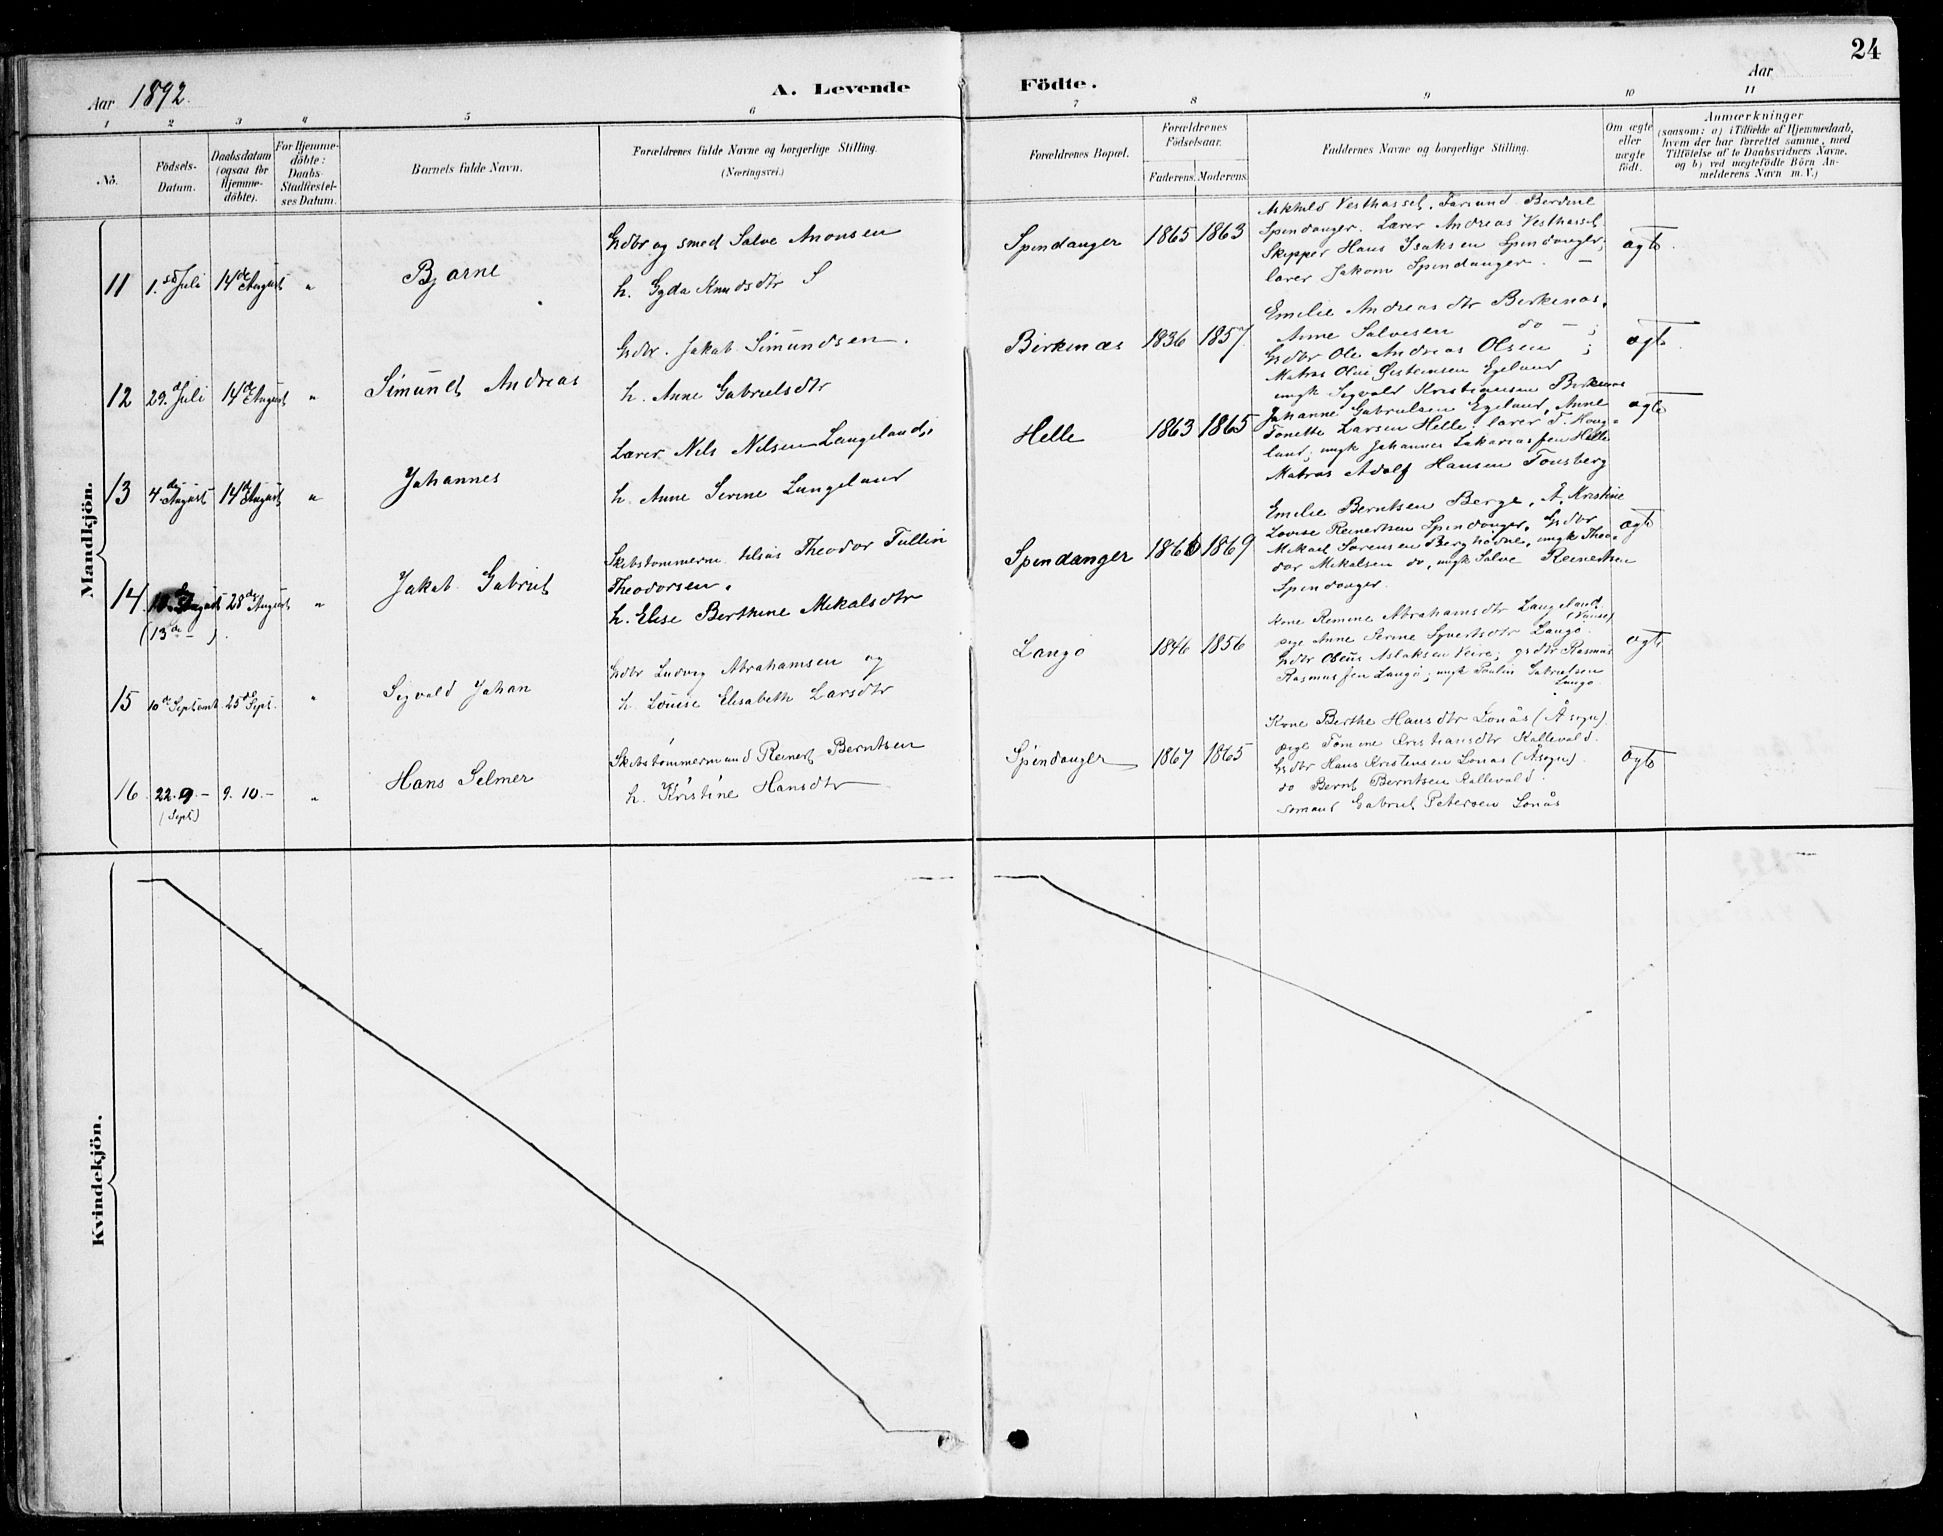 24
Aar 1892.
A. Levende Födte.
Aar
1 2 3 4 5 6 7 8 9 10 11
No.
Födsels-Datum.
Daabsdatum (ogsaa for Hjemme-döbte).
For Hjemme-döbte: Daabs-Stadfæstel-ses Datum.
Barnets fulde Navn.
Forældrenes fulde Navne og borgerlige Stilling.
(Næringsvei.)
Forældrenes Bopæl.
Forældrenes Födselsaar.
Faderens. Moderens.
Faddernes Navne og borgerlige Stilling.
Om ægte eller uægte født.
Anmærkninger
(saasom: a) i Tilfælde af Hjemmedaab,
hvem der har forrettet samme, med
Tilföielse af to Daabsvidners Navne,
og b) ved uegtefödte Börn An-
melderens Navn m. V.)
Mandkjön.
11 1. Juli 14de August " Bjarne
Gdbr og smed Salve Anonsen
h. Gyda Knudsdtr S
Spindanger 1865 1863
Vesthassel, Farsund. Berdine
Spindanger. Lærer Andreas Vesthassel
Skipper Hans Isaksen Spindanger,
lærer Jakom Spindanger. –
ægte
12 29. Juli 14de August " Simund Andreas
Gdbr. Jakob Simundsen.
h. Anne Gabrielsdtr
Birkenæs 1836 1857
Emilie Andreasdtr Birkenæs.
Anne Salvesen do – ;
Gdbr Ole Andreas Olsen ;
Matros Olai Egeland
ungk Sigvald Kristiansen Birkenæs
ægte
13 4. August 14de August " Johannes
Lærer Nils Nilsen Langeland,
h. Anne Serine Langeland
Helle 1863 1865
Johanne Gabrielsen Egeland, Anne
Tonette Larsen Helle, lærer T. Haug-
land, ungk Johannes Zakariassen Helle
Matros Adolf Hansen Tonsberg
ægte
14 August 28de August " Jakob Gabriel
(13de – )
Skibstømmerm. Elias Theodor Tullin
Theodorsen.
h. Elise Berthine Mikalsdtr
Spindanger 1869
Emilie Berntsen Berge, A. Kristine
Lovise Reinertsen Spindanger, Gdbr
Mikael Sørensen Berghodne, ungk Theo-
dor Mikalsen do, ungk Salve Reinertsen
Spindanger.
ægte
15 10de Septemb. 25de Sept. " Sigvald Johan
Gdbr Ludvig Abrahamsen og
h. Lovise Elisabeth Larsdtr
Langø 1846 1856
Kone Abrahamsdtr Langeland
pige Anne Serine Syvertsdtr Langø.
Gdbr Oleus Aslaksen Veire; grdbr Rasmus
Rasmussen Langø; ungk Paulin Gabrielsen
Langø.
ægte
16 22.9.– 9.10.– " Hans Selmer
(Sept)
Skibstømmermand Reinert Berntsen
h. Kristine Hansdtr
Spindanger 1867 1865
Kone Berthe Hansdtr Lonås (Å sogn)
pige Tomine Kristiansdtr Kallevold.
Gdbr Hans Kristensen Lonås (Åsogn).
do Bernt Berntsen Kallevold.
Sømand Gabriel Petersen Lonås
ægte
Kvindekjön.